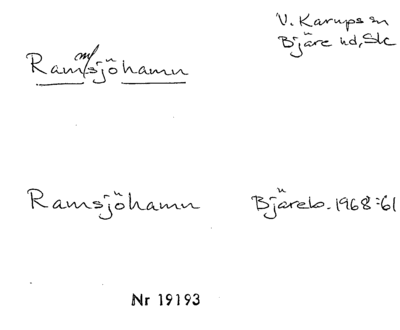 V. Karups sn
Bjäre hd, Sk
Ramsjöhamn
Ramsjöhamn Bjäreb. 1968:61
Nr 19193